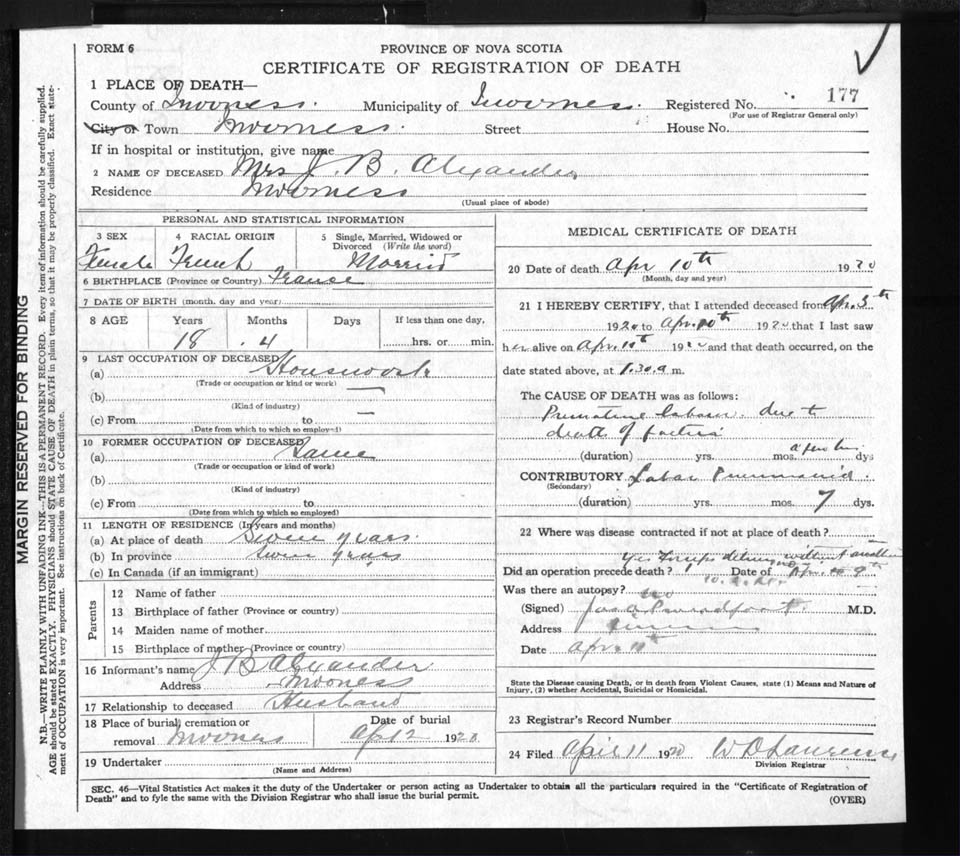 FORM 6
PROVINCE OF NOVA SCOTIA
CERTIFICATE OF REGISTRATION OF DEATH
1 PLACE OF DEATH—
County of Inverness. Municipality of Inverness. Registered No. 177
(For use of Registrar General only)
City or Town Inverness. Street House No.
If in hospital or institution, give name
2 NAME OF DECEASED Mrs J. B. Alexander
Residence Inverness
(Usual place of abode)
PERSONAL AND STATISTICAL INFORMATION
3 SEX
Female
4 RACIAL ORIGIN
French
5 Single, Married, Widowed or
Divorced (Write the word)
Married
6 BIRTHPLACE (Province or Country) France
7 DATE OF BIRTH (month, day and year)
8 AGE Years Months Days If less than one day,
18 4 hrs. or min.
9 LAST OCCUPATION OF DECEASED
(a) Housework
(Trade or occupation or kind or work)
(b)
(Kind of industry)
(c) From to
(Date from which to which so employed)
10 FORMER OCCUPATION OF DECEASED
(a) Same
(Trade or occupation or kind of work)
(b)
(Kind of industry)
(c) From to
(Date from which to which so employed)
11 LENGTH OF RESIDENCE (In years and months)
(a) At place of death Seven years.
(b) In province Seven years
(c) In Canada (if an immigrant)
Parents
12 Name of father
13 Birthplace of father (Province or country)
14 Maiden name of mother
15 Birthplace of mother (Province or country)
16 Informant's name J B Alexander
Address Inverness
17 Relationship to deceased Husband
18 Place of burial, cremation or
removal Inverness
Date of burial
Apr 12 1920
19 Undertaker
(Name and Address)
MEDICAL CERTIFICATE OF DEATH
20 Date of death Apr 10th 1920
(Month, day and year)
21 I HEREBY CERTIFY, that I attended deceased from Apr. 3th
1920 to Apr. 10th 1920 that I last saw
her alive on Apr. 10th 1920 and that death occurred, on the
date stated above, at 1.30 a.m.
The CAUSE OF DEATH was as follows:
Premature labour due to
death of foetus
(duration) yrs. mos. a few hrs dys
CONTRIBUTORY Lobar Pneumonia
(Secondary)
(duration) yrs. mos. 7 dys.
22 Where was disease contracted if not at place of death?
Yes Forceps delivery without
Did an operation precede death? Date of Apr. 9th
Was there an autopsy? no
(Signed) M.D.
Address
Date Apr. 10th
State the Disease causing Death, or in death from Violent Causes, state (1) Means and Nature of
Injury, (2) whether Accidental, Suicidal or Homicidal.
23 Registrar's Record Number
24 Filed April 11 1920 W D Lawrence
Division Registrar
SEC. 46—Vital Statistics Act makes it the duty of the Undertaker or person acting as Undertaker to obtain all the particulars required in the "Certificate of Registration of
Death" and to fyle the same with the Division Registrar who shall issue the burial permit.
(OVER)
MARGIN RESERVED FOR BINDING
N.B.—WRITE PLAINLY WITH UNFADING INK—THIS IS A PERMANENT RECORD. Every item of information should be carefully supplied.
AGE should be stated EXACTLY. PHYSICIANS should STATE CAUSE OF DEATH in plain terms, so that it may be properly classified. Exact state-
ment of OCCUPATION is very important. See instructions on back of Certificate.